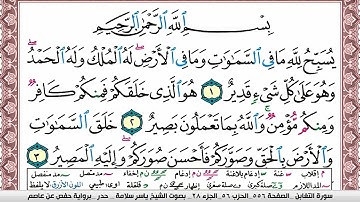 بِسْمِ ٱللَّهِ ٱلرَّحْمَٰنِ ٱلرَّحِيمِ
يُسَبِّحُ لِلَّهِ مَا فِي ٱلسَّمَٰوَٰتِ وَمَا فِي ٱلْأَرْضِ لَهُ ٱلْمُلْكُ وَلَهُ ٱلْحَمْدُ
وَهُوَ عَلَىٰ كُلِّ شَيْءٍ قَدِيرٌ ١ هُوَ ٱلَّذِي خَلَقَكُمْ فَمِنكُمْ كَافِرٌ
وَمِنكُم مُّؤْمِنٌ وَٱللَّهُ بِمَا تَعْمَلُونَ بَصِيرٌ ٢ خَلَقَ ٱلسَّمَٰوَٰتِ
وَٱلْأَرْضَ بِٱلْحَقِّ وَصَوَّرَكُمْ فَأَحْسَنَ صُوَرَكُمْ وَإِلَيْهِ ٱلْمَصِيرُ ٣
سورة التغابن . الصفحة ٥٥٦ الحزب ٥٦ الجزء ٢٨ . بصوت الشيخ ياسر سلامة . حدر . برواية حفص عن عاصم